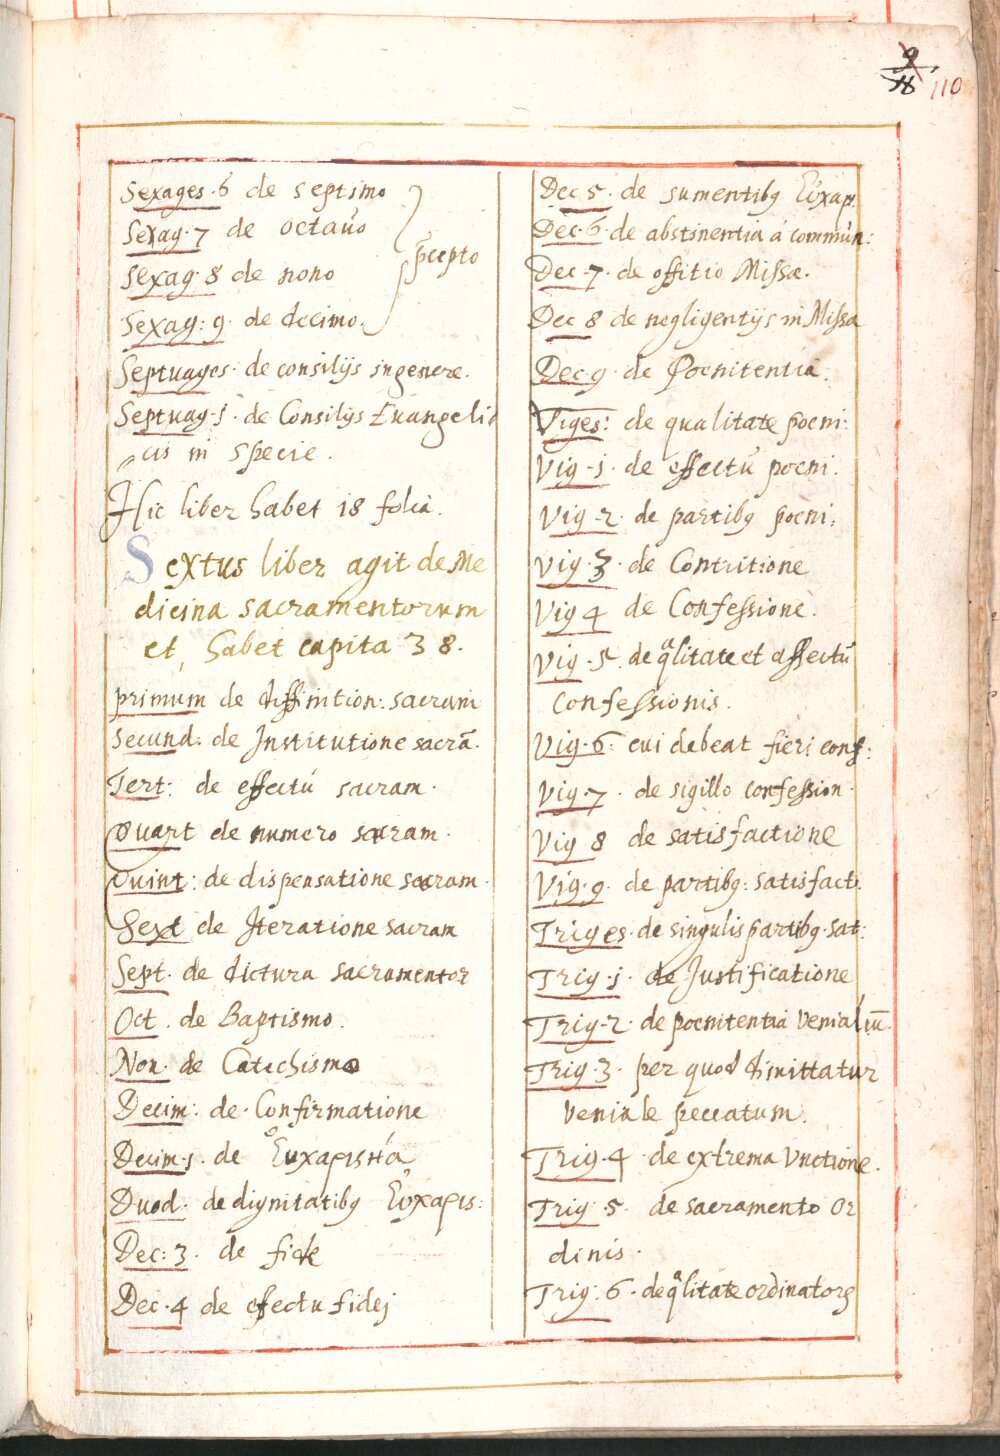 9
18
110
Sexages. 6 de septimo
Sexag. 7 de octauo
Sexag 8 de nono
pcepto
Sexag: 9. de decimo.
Septuages. de consilijs in genere.
Septuag. j. de Consilijs Euangeli
cis in specie.
Hic liber habet 18 folia.
Sextus liber agit de Me
dicina sacramentorum
et habet capita 38.
primum de diffinition: sacram
secund: de Institutione sacrā.
Tert: de effectu sacram.
Quart de numero sacram.
Quint: de dispensatione sacram.
Sext de Iteratione sacram
Sept. de dictura sacramentor
Oct. de Baptismo.
Non. de Catechismo
Decim: de Confirmatione
Decim. j. de Ευχαριστία
Duod. de dignitatibꝫ Εὐχαρις:
Dec: 3. de fide
Dec. 4 de efectu fidej
Dec 5. de sumentibꝫ Εὐχαρ
Dec. 6. de abstinentia á commun:
Dec. 7. de offitio Missæ.
Dec 8 de negligentijs in Missa
Dec. 9. de Poenitentia.
Viges: de qualitate poeni:
Vig. j. de effectu poeni.
Vig. 2. de partibꝫ poeni:
Vig. 3. de Contritione
Vig 4 de Confessione.
Vig. 5. de qlitate et affectu
confessionis.
Vig. 6: cui debeat fieri conf:
Vig. 7. de sigillo confession.
Vig 8 de satisfactione
Vig. 9. de partibꝫ: satisfact.
Triges. de singulis partibꝫ. sat:
Trig. j. de Justificatione
Trig. 2. de poenitentia Venialiū.
Trig. 3. per quod dimittatur
veniale peccatum.
Trig. 4 de extrema Vnctione.
Trig. 5. de sacramento Or
dinis.
Trig. 6. de qlitate ordinatorꝫ